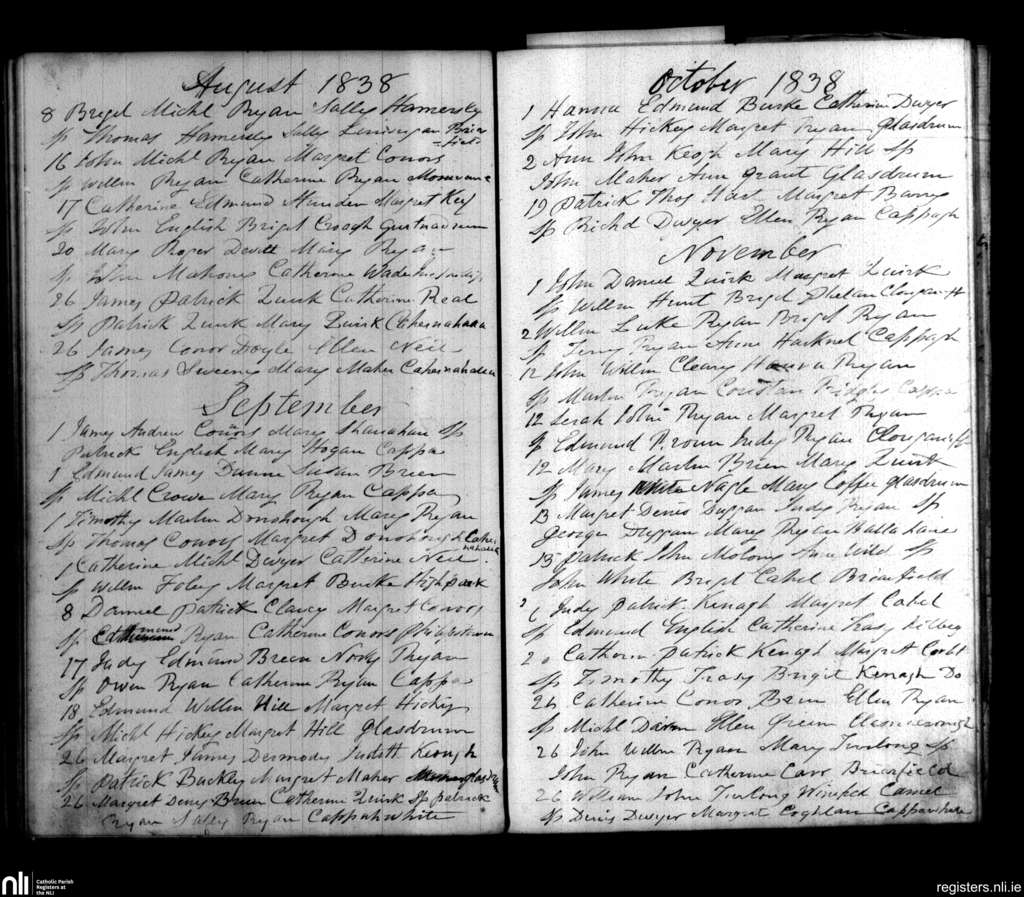 August 1838
8 Bregd Michl Ryan Sally Hamersly
Sp Thomas Hamersly Sally Brien
field
16 John Michl Ryan Margret Conors
Sp Willm Ryan Catherine Ryan
17 Catherine Edmund Margret Key
Sp John English Briget Creagh
20 Mary Roger Devitt Mary Ryan
Sp John Mahony Catherine Wade
26 James Patrick Quirk Catherine Real
Sp Patrick Quirk Mary Quirk Cahernahalla
26 James Conor Doyle Ellen Neil
Sp Thomas Sweeney Mary Maher Cahernahalla
September
1 James Andrew Conors Mary Shanahan Sp
Patrick English Mary Hogan Cappa
1 Edmund James Dunne Susan Brien
Sp Michl Crowe Mary Ryan Cappa
1 Timothy Martin Donohough Mary Ryan
Sp Thomas Conors Margret Donohough Caher
nahalla
1 Catherine Michl Dwyer Catherine Neil
Sp Willm Foley Margret Burke High park
8 Daniel Patrick Clancy Margret Conors
Sp Edmund Ryan Catherine Conors Philipstown
17 Judy Edmund Breen Nody Ryan
Sp Owen Ryan Catherine Ryan Cappa
18 Edmund Willm Hill Margret Hickey
Sp Michl Hickey Margret Hill Glasdrum
26 Margret James Dermody Judith Keough
Sp Patrick Buckley Margret Maher Glasdrum
26 Margret Denis Breen Catherine Quirk Sp Patrick
Ryan Sally Ryan Cappahwhite
October 1838
1 Hanna Edmund Burke Catherine Dwyer
Sp John Hickey Margret Ryan Glasdrum
2 Ann John Keogh Mary Hill Sp
John Maher Ann Grant Glasdrum
19 Patrick Thos Margret Barry
Sp Richd Dwyer Ellen Ryan Cappagh
November
1 John Daniel Quirk Margret Quirk
Sp Willm Hunt Briget Phelan
2 Willm Luke Ryan Briget Ryan
Sp Terry Ryan Anne Hacknel Cappagh
12 John Willm Cleary Hanna Ryan
Sp Martin Ryan Bridget Cappa
12 Sarah John Ryan Margret Ryan
Sp Edmund Brown Judy Ryan
12 Mary Martin Brien Mary Quirk
Sp James Nagle Mary Coffee Glasdrum
13 Margret Denis Duggan Judy Ryan Sp
George Duggan Mary Ryan
13 Patrick John Molony Wild Sp
John White Briget Cahel Brienfield
Judy Patrick Kenagh Margret Cahel
Sp Edmund English Catherine Trasy
Catherine Patrick Kenagh Margret
Sp Timothy Trasy Brigit Kenagh Do
26 Catherine Conor Brien Ellen Ryan
Sp Michl Ellen Green
26 John Willm Ryan Mary Sp
John Ryan Catherine Carr Brienfield
26 William John Winifred
Sp Denis Dwyer Margret Coghlan Cappawhite
nli
Catholic Parish
Registers at
the NLI
registers.nli.ie